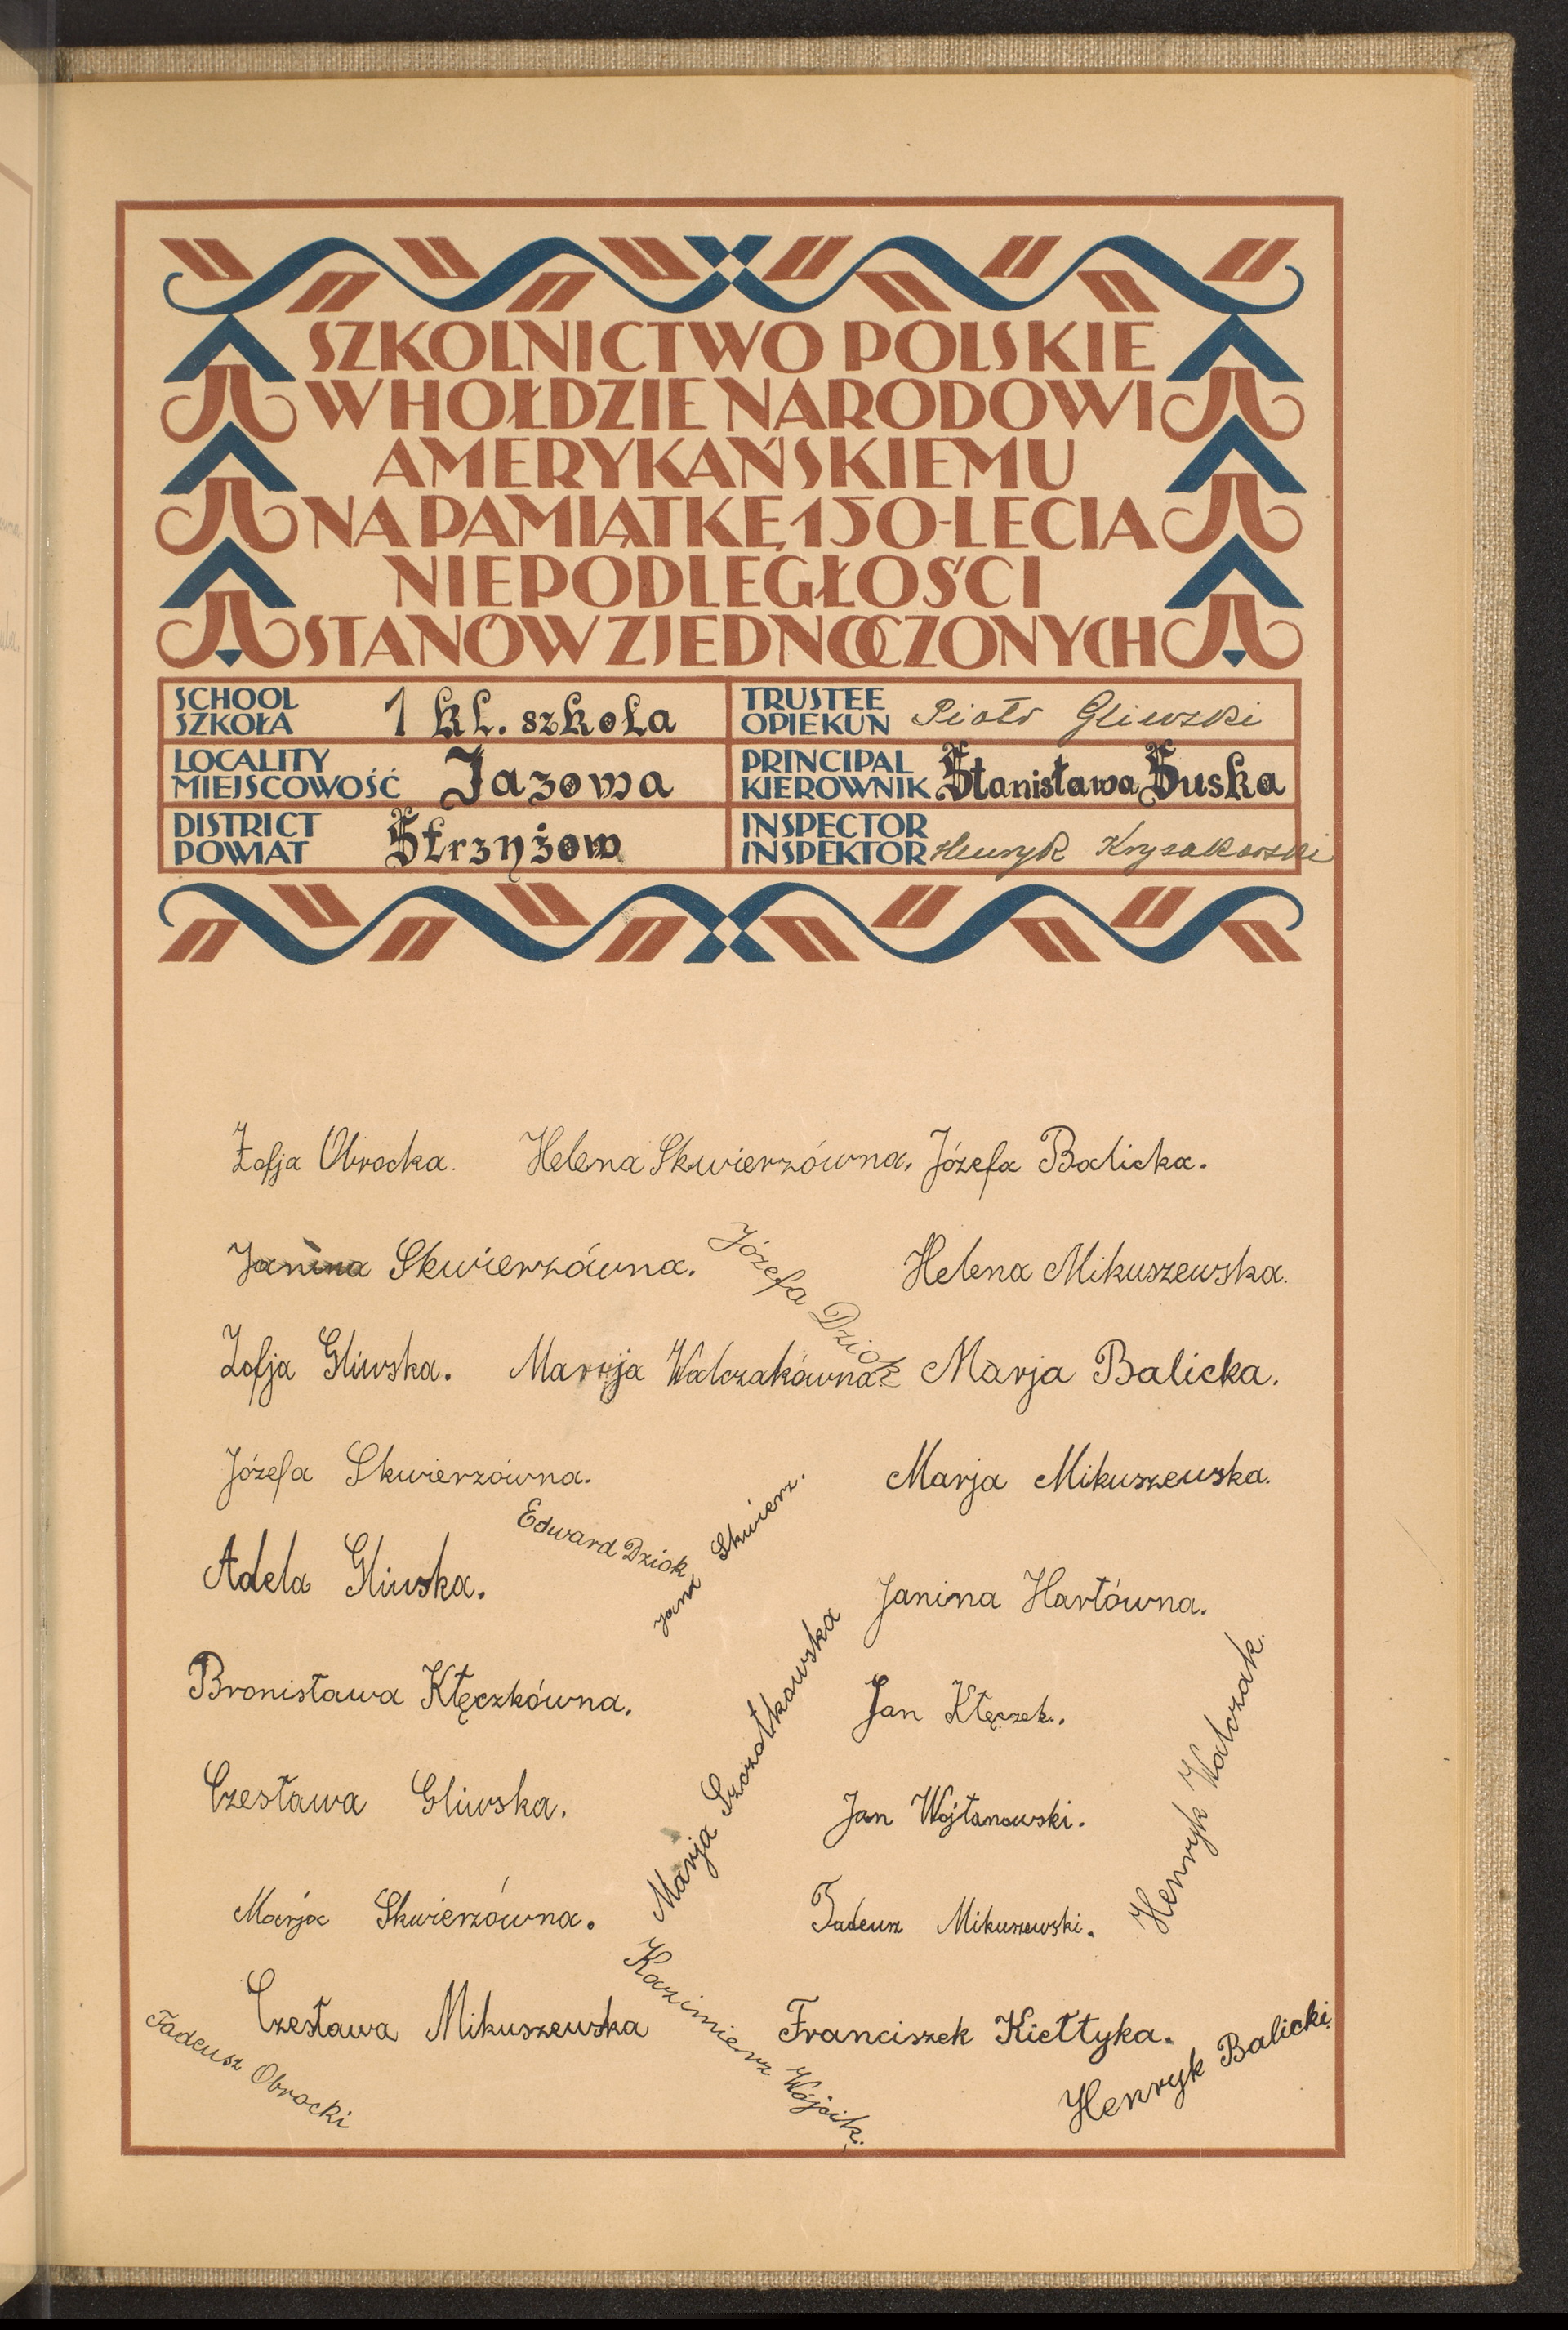 SZKOLNICTWO POLSKIE
W HOŁDZIE NARODOWI
AMERYKAŃSKIEMU
NA PAMIĄTKĘ 150-LECIA
NIEPODLEGŁOŚCI
STANÓW ZJEDNOCZONYCH
SCHOOL
SZKOŁA 1 kl. szkoła
TRUSTEE
OPIEKUN Piotr Gliwski
LOCALITY
MIEJSCOWOŚĆ Jazowa
PRINCIPAL
KIEROWNIK Stanisława Suska
DISTRICT
POWIAT Strzyżow
INSPECTOR
INSPEKTOR Henryk
Zofja Obrocka. Helena Skwierzówna. Józefa Balicka.
Janina Skwierzówna. Józefa Dziok Helena Mikuszewska.
Zofja Gliwska. Marja Walczakówna Marja Balicka.
Józefa Skwierzówna. Marja Mikuszewska.
Edward Dziok Jana Skwierz.
Adela Gliwska. Janina Hartówna.
Bronisława Kłęczkówna. Marja Szczotkowska Jan Kłęczek.
Henryk Walczak.
Czesława Gliwska. Jan Wojtanowski.
Marja Skwierzówna. Tadeusz Mikuszewski.
Czesława Mikuszewska Kazimierz Wójcik. Franciszek Kiełtyka.
Tadeusz Obrocki Henryk Balicki